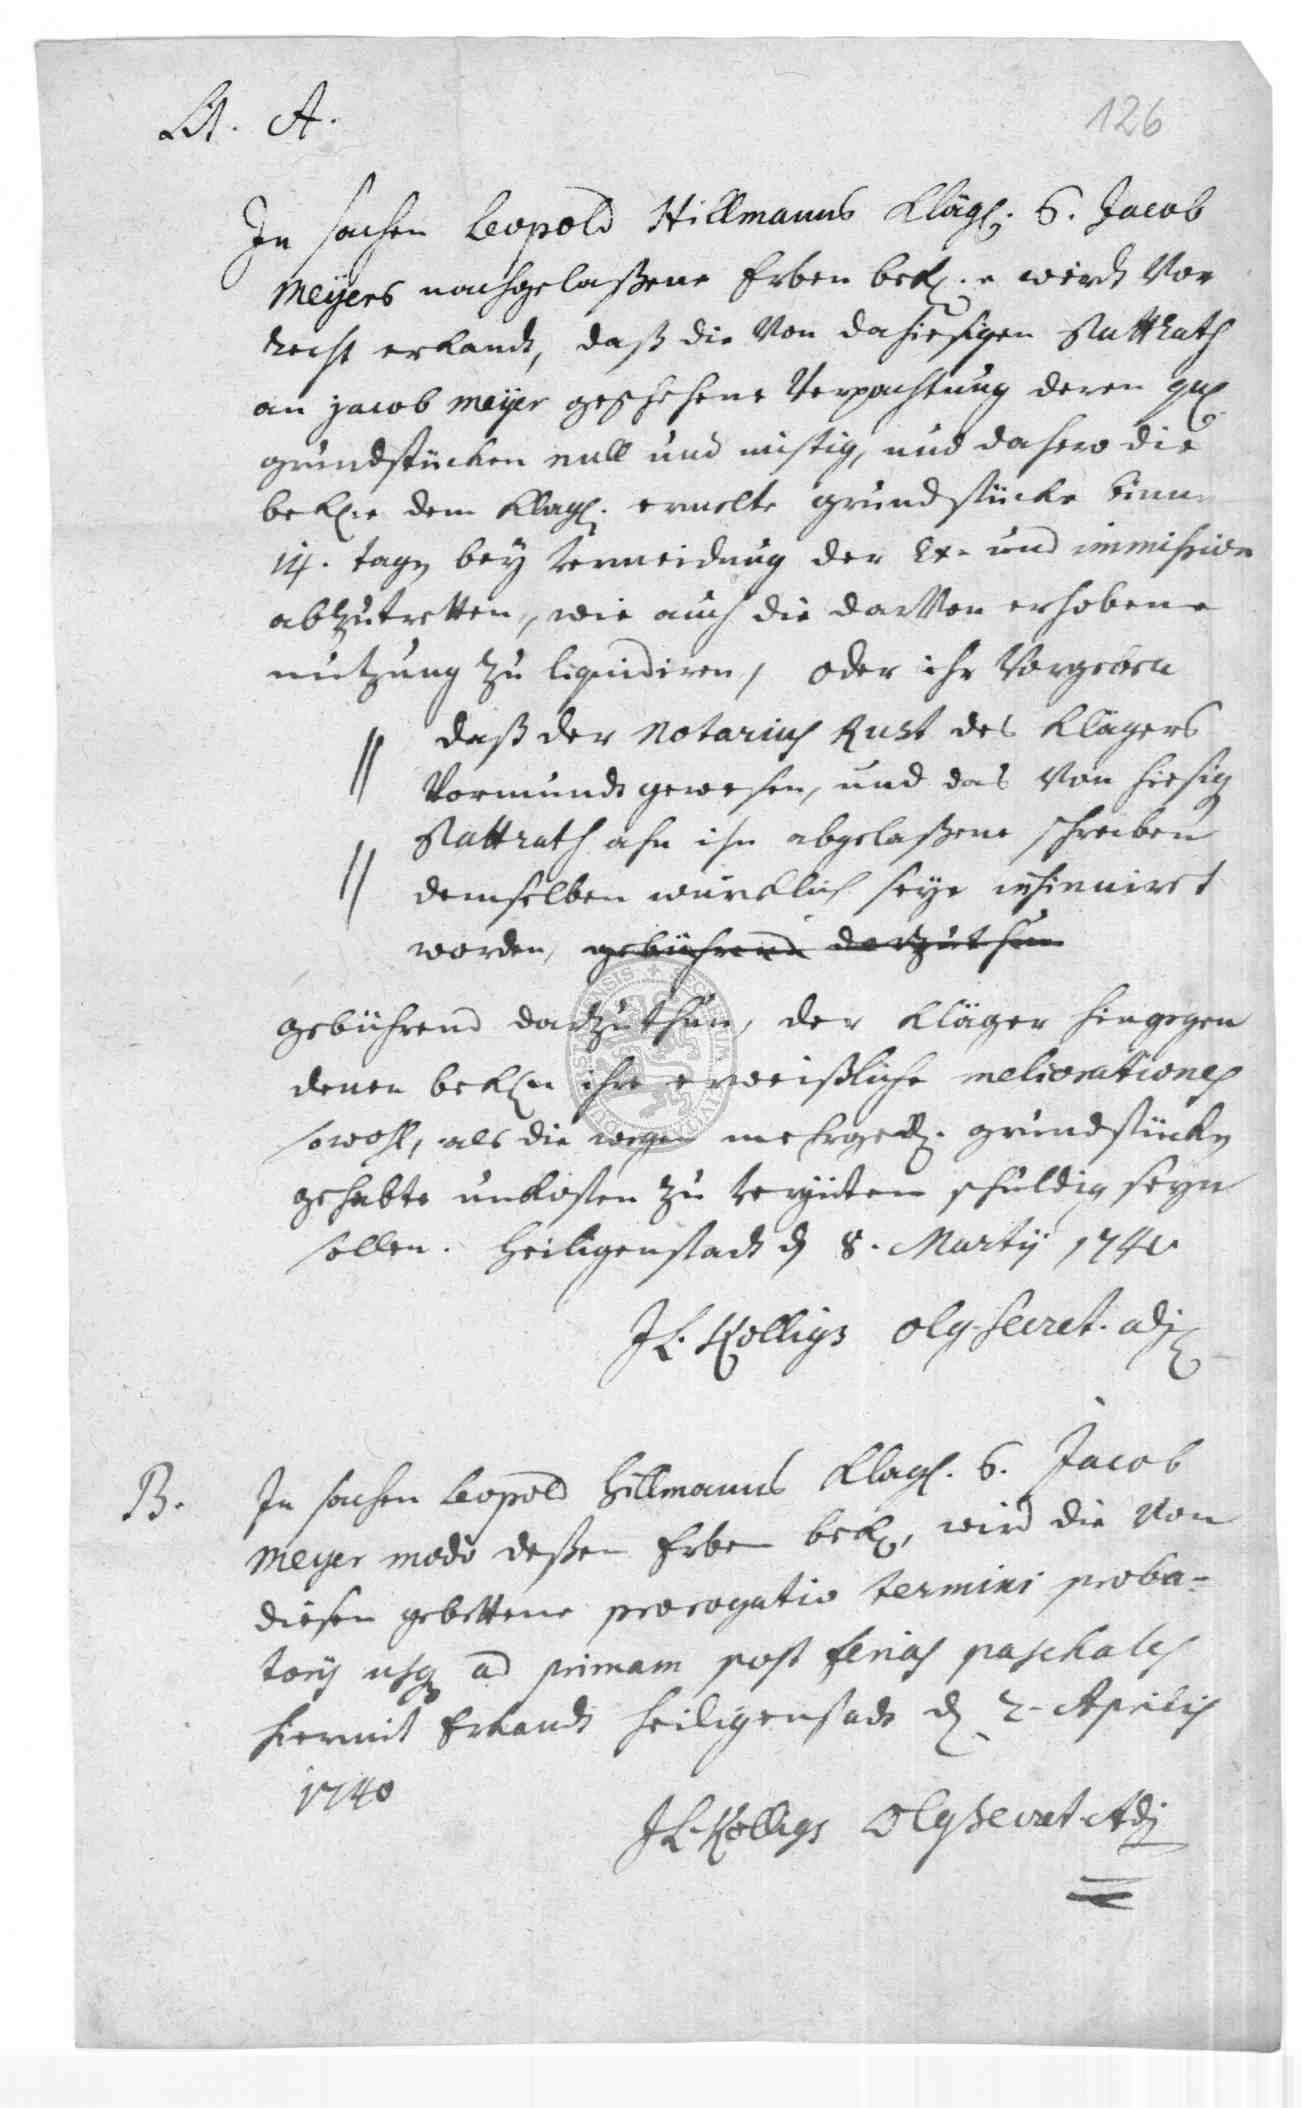 Lit. A.
126
In sachen Leopold Hillmanns Kläg. C. Jacob
Meÿers nachgelaßene Erben bekl.e wirdt Vor
Recht erkandt, daß die Von dahiesigen Stattrath
an jacob Meÿer geschehene Verpachtung deren qu.
grundstücken null und nichtig, und dahero die
bekl.e dem Kläg. ermelte grundstücke binnen
14. tagen beÿ Vermeidung der Ex- und immission
abzutretten, wie auch die darVon erhobene
nutzung zu liquidiren, oder ihr Vorgeben
// daß der Notarius Rust des Klägers
Vormundt gewesen, und das Von hiesigen
// Stattrath ahn ihn abgelaßene schreiben
demselben würcklich seÿe insinuiret
worden, gebührend darzuthun
gebührend darzuthun, der Kläger hingegen
denen bekl.n ihre erweißliche meliorationes
sowohl, als die wegen mehrged. grundstücken
gehabte unkosten zu vergüten schuldig seyn
sollen. Heiligenstadt d. 8. Martÿ 1740
JL. Kolligs Olg. Secret. adj.
B. In sachen Leopold Hillmanns Kläg. C. Jacob
Meyer modo deßen Erben bekl., wird die Von
diesen gebettene prorogatio termini proba-
torÿ usq ad primam post ferias paschales
hiermit Erkandt Heiligenstadt d. 2. Aprilis
1740
JL. Kolligs Olg Secret. Adj